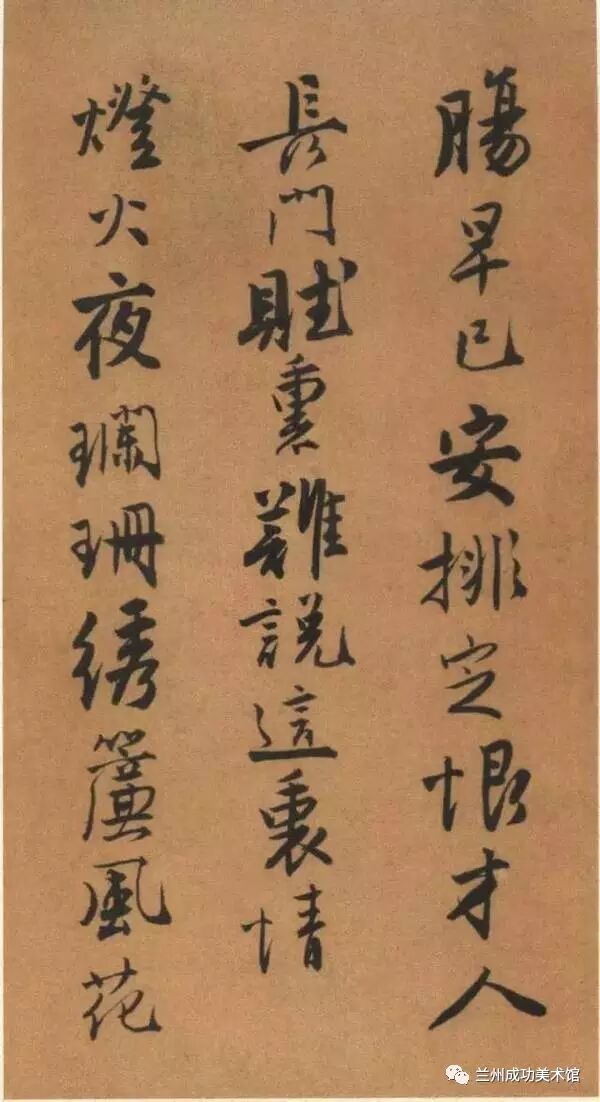 腸早已安排定恨才人
長門賦裏難說這裏情
燈火夜瓓珊綉簾風花
兰州成功美术馆